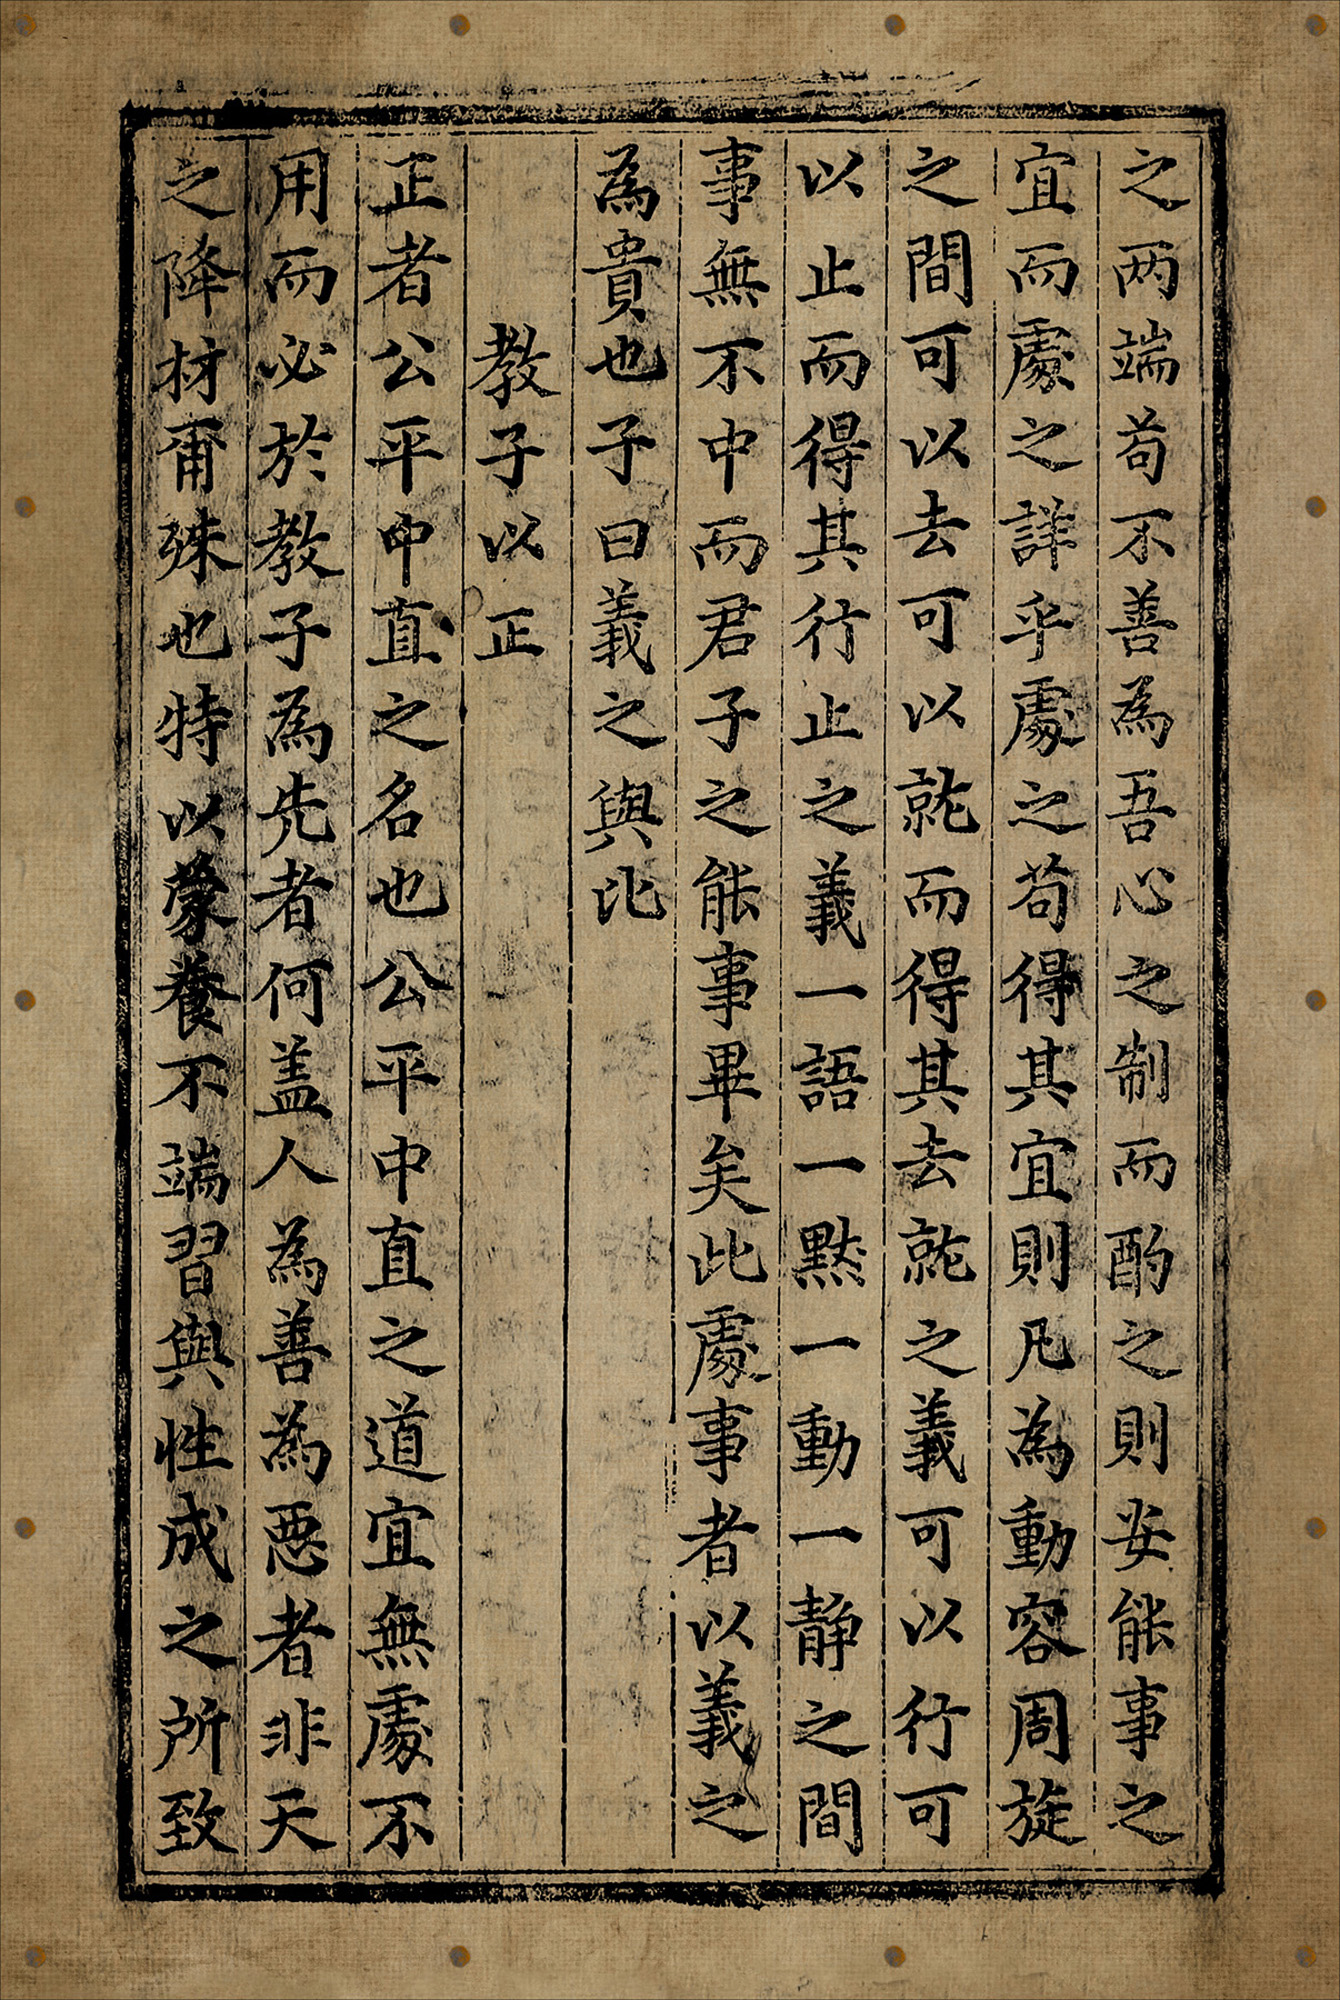 之两端苟不善為吾心之制而酌之則安能事之
宜而處之詳乎處之苟得其宜則凡為動容周旋
之間可以去可以就而得其去就之義可以行可
以止而得其行止之義一語一默一動一静之間
事無不中而君子之能事畢矣此處事者以義之
為貴也子曰義之與比
教子以正
正者公平中直之名也公平中直之道宜無處不
用而必於教子為先者何盖人為善為惡者非天
之降材爾殊也特以蒙養不端習與性成之所致